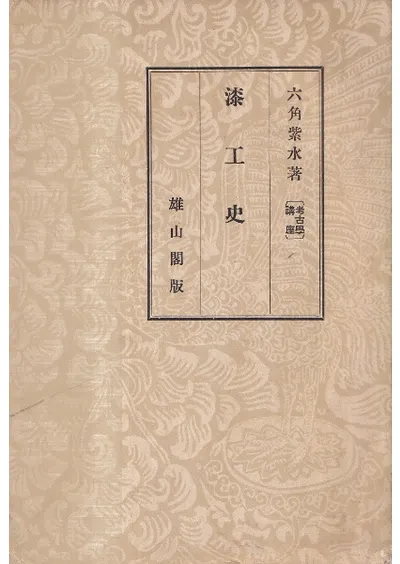 六角紫水著
〔考古學
講座〕
漆工史
雄山閣版